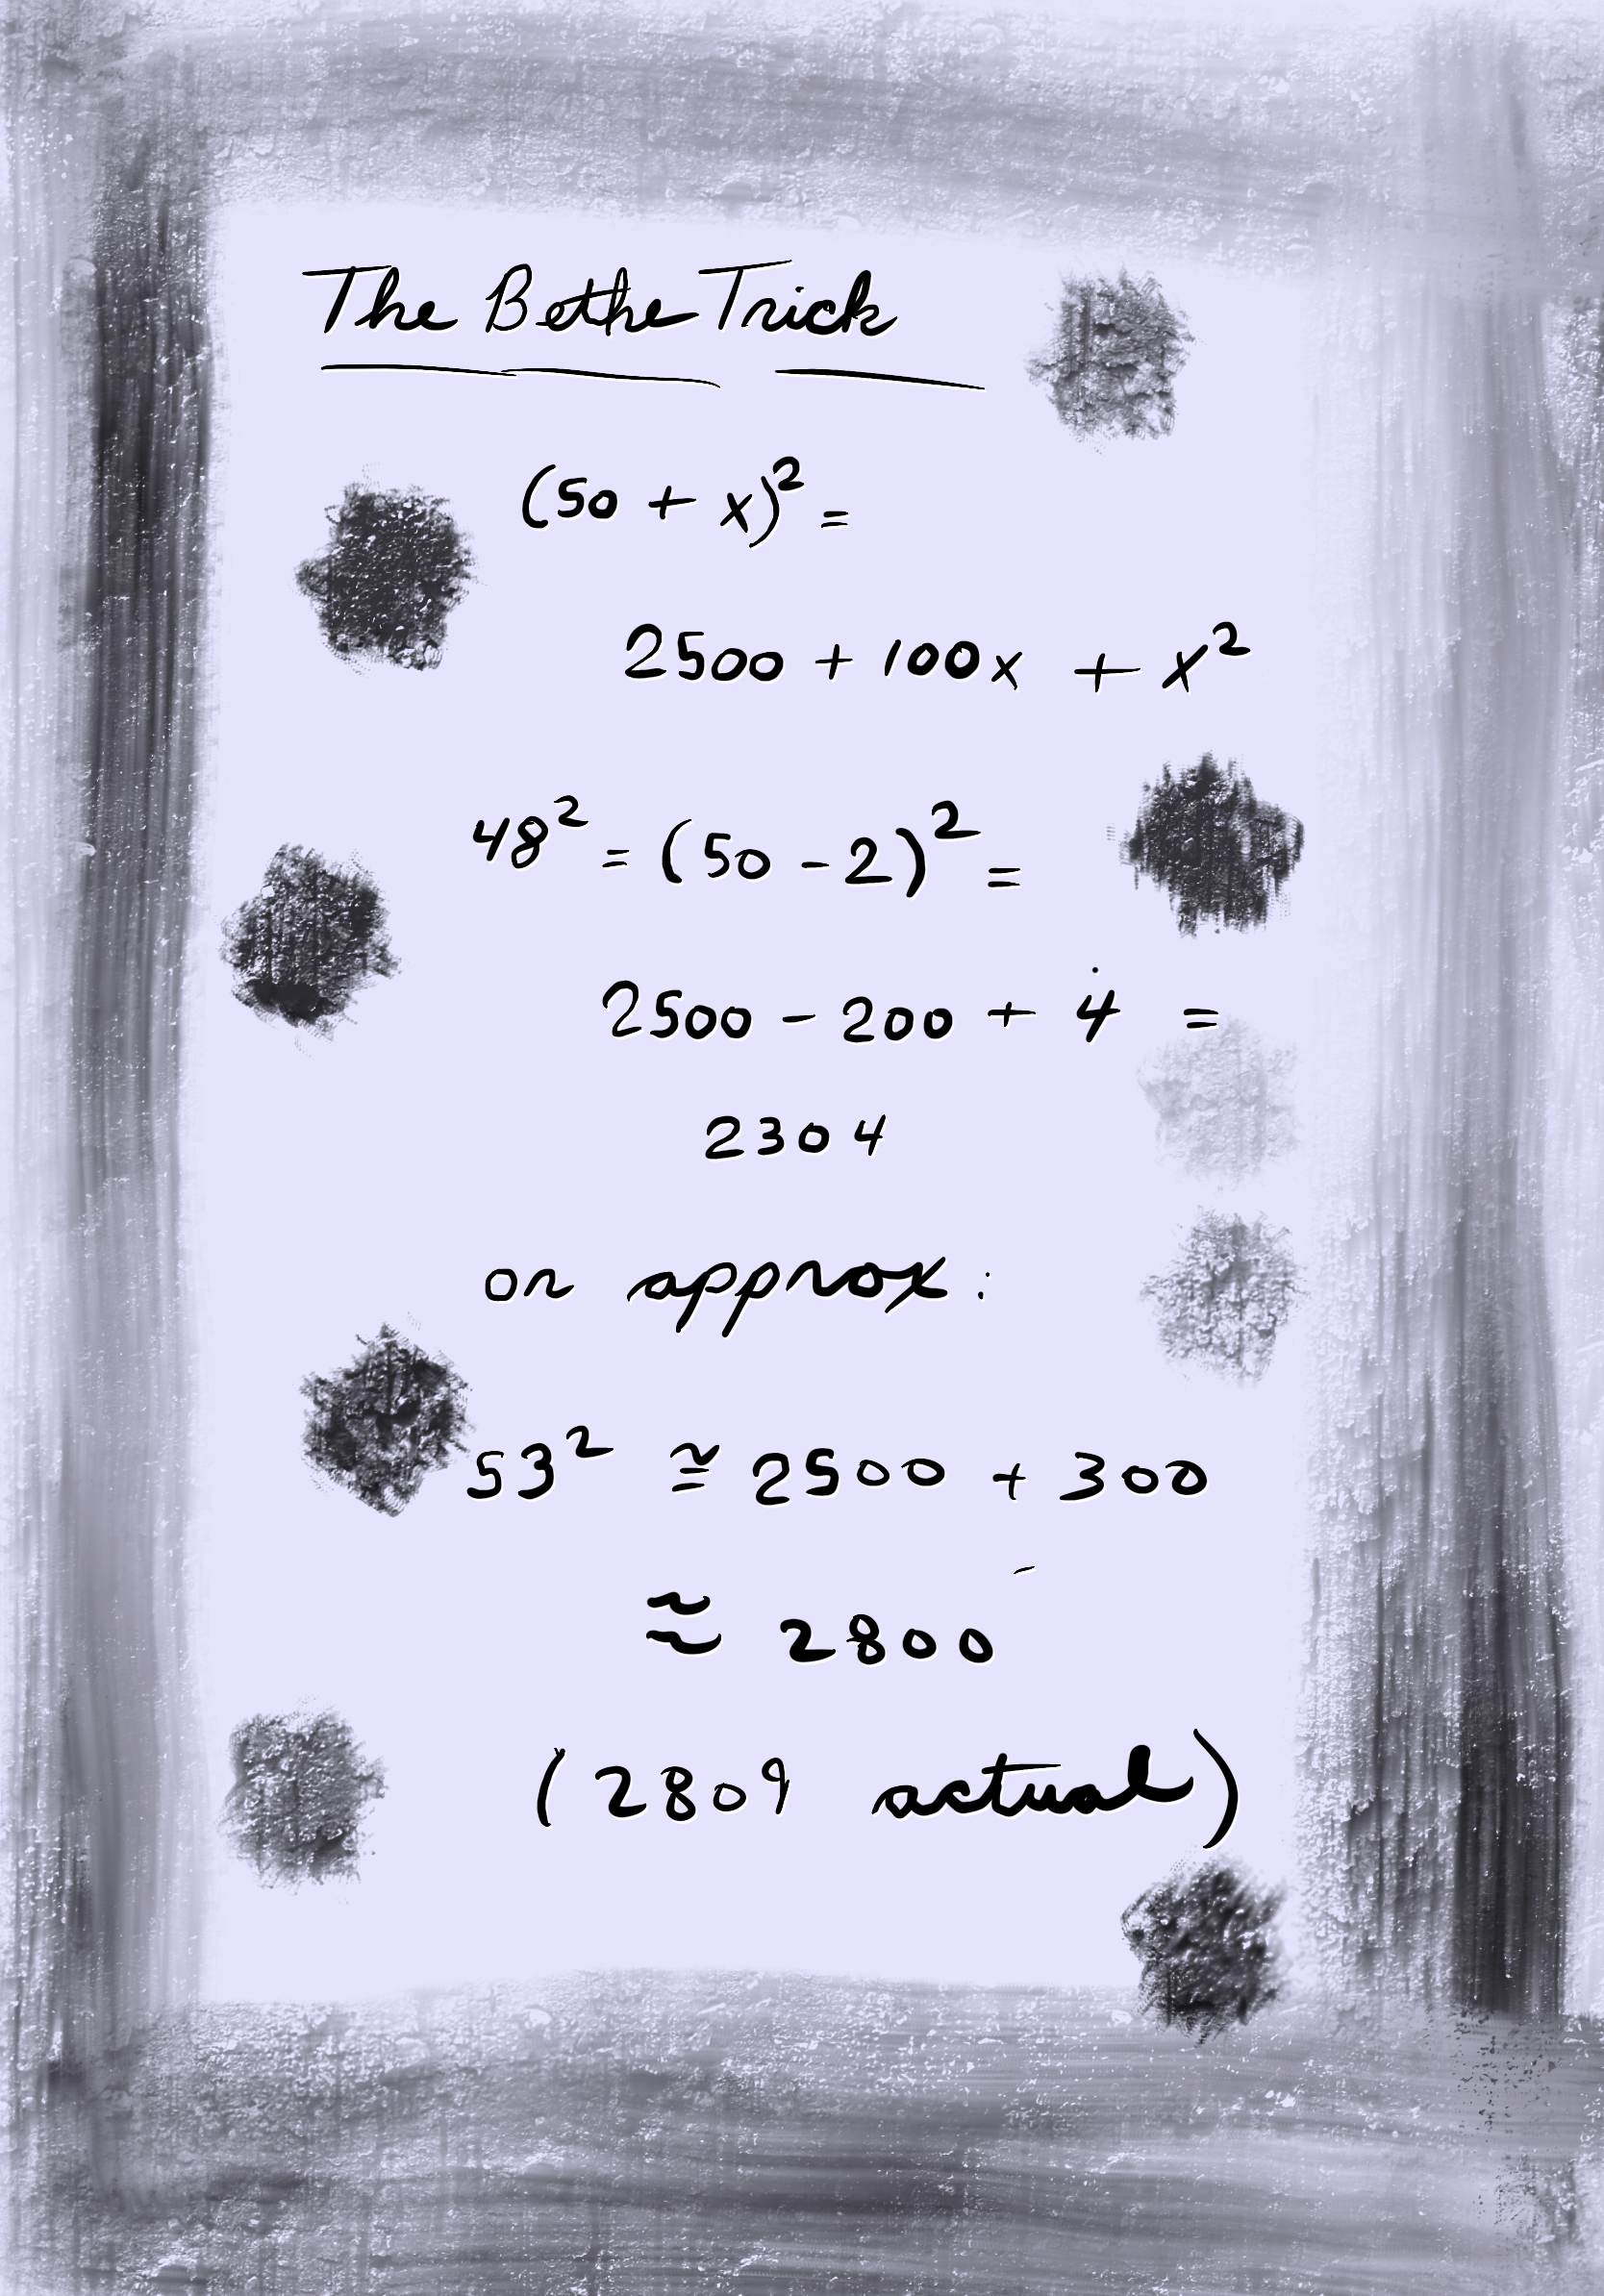 The Bethe Trick
(50 + x)² =
2500 + 100x + x²
48² = (50 - 2)² =
2500 - 200 + 4 =
2304
or approx:
53² ≅ 2500 + 300
≈ 2800
(2809 actual)